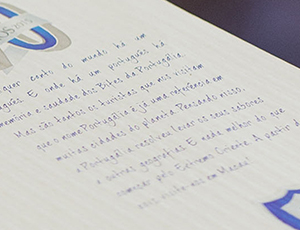 quer canto do mundo há um
guês. E onde há um português há
memória e saudade dos Bifes da Portugália.
Mas são tantos os turistas que nos visitam
que o nome Portugália é já uma referência em
muitas cidades do planeta. Pensando nisso,
a Portugália resolveu levar os seus sabores
a outras geografias. E nada melhor do que
começar pelo Extremo Oriente. A partir d
visite-nos em Macau!